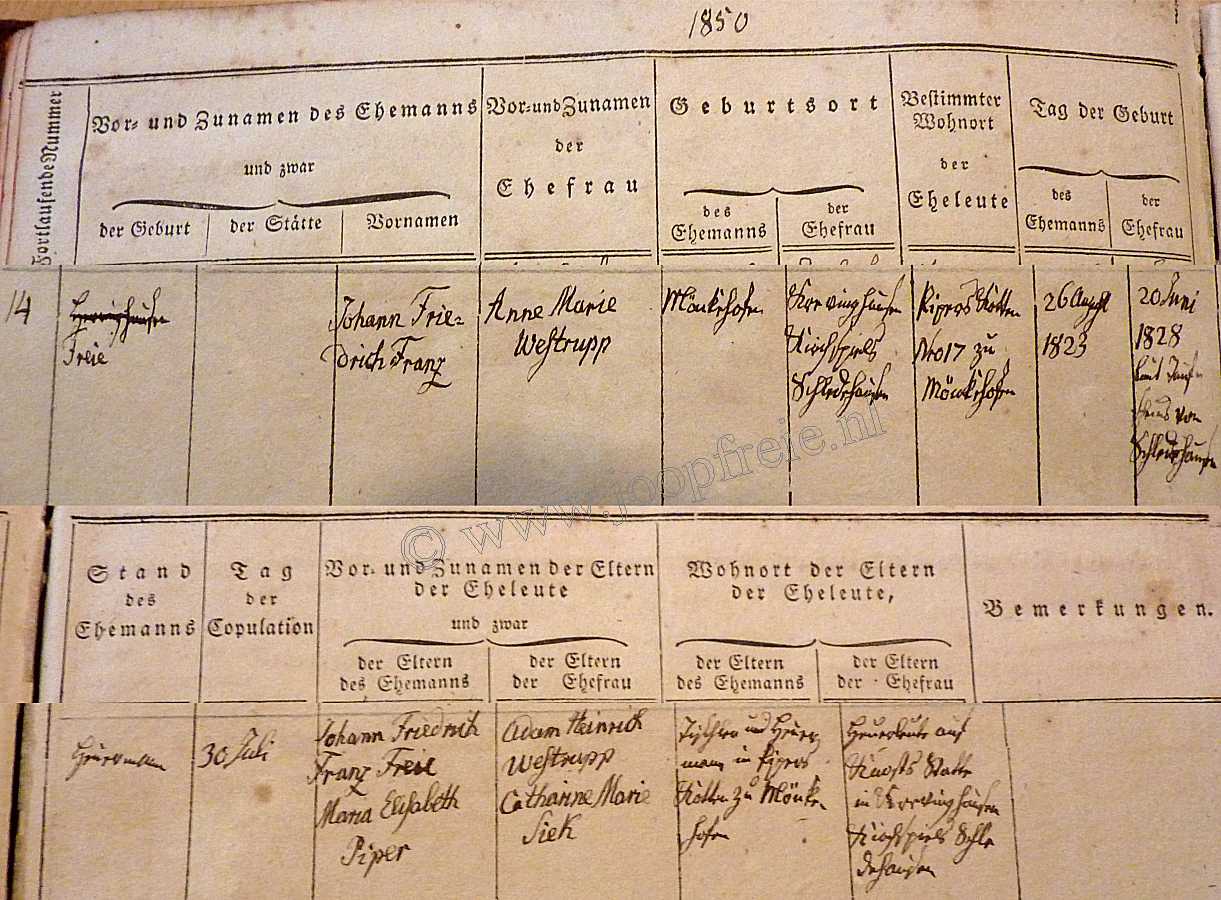 1850
Fortlaufende Nummer
Vor- und Zunamen des Ehemanns
und zwar
der Geburt
der Stätte
Vornamen
Vor- und Zunamen
der
Ehefrau
Geburtsort
des
Ehemanns
der
Ehefrau
Bestimmter
Wohnort
der
Eheleute
Tag der Geburt
des
Ehemanns
der
Ehefrau
14
Freie
Johann Frie-
drich Franz
Anne Marie
Westrupp
Mönkehofen
Krevinghausen
Kirchspiels
Schledehausen
Pipers Kotten
Nro 17 zu
Mönkehofen
26 August
1823
20 Juni
1828
laut Tauf-
scheins von
Schledehausen
© www.joopfreie.nl
Stand
des
Ehemanns
Tag
der
Copulation
Vor- und Zunamen der Eltern
der Eheleute
und zwar
der Eltern
des Ehemanns
der Eltern
der Ehefrau
Wohnort der Eltern
der Eheleute,
der Eltern
des Ehemanns
der Eltern
der Ehefrau
Bemerkungen.
Heuermann
30 Juli
Johann Friedrich
Franz Freie
Maria Elisabeth
Piper
Adam Heinrich
Westrupp
Catharine Marie
Siek
Tischler und Heuer
mann in Pipers
Kotten zu Mönke-
hofen
Heuerleute auf
Stätte
in Krevinghausen
Kirchspiels Schle
dehausen